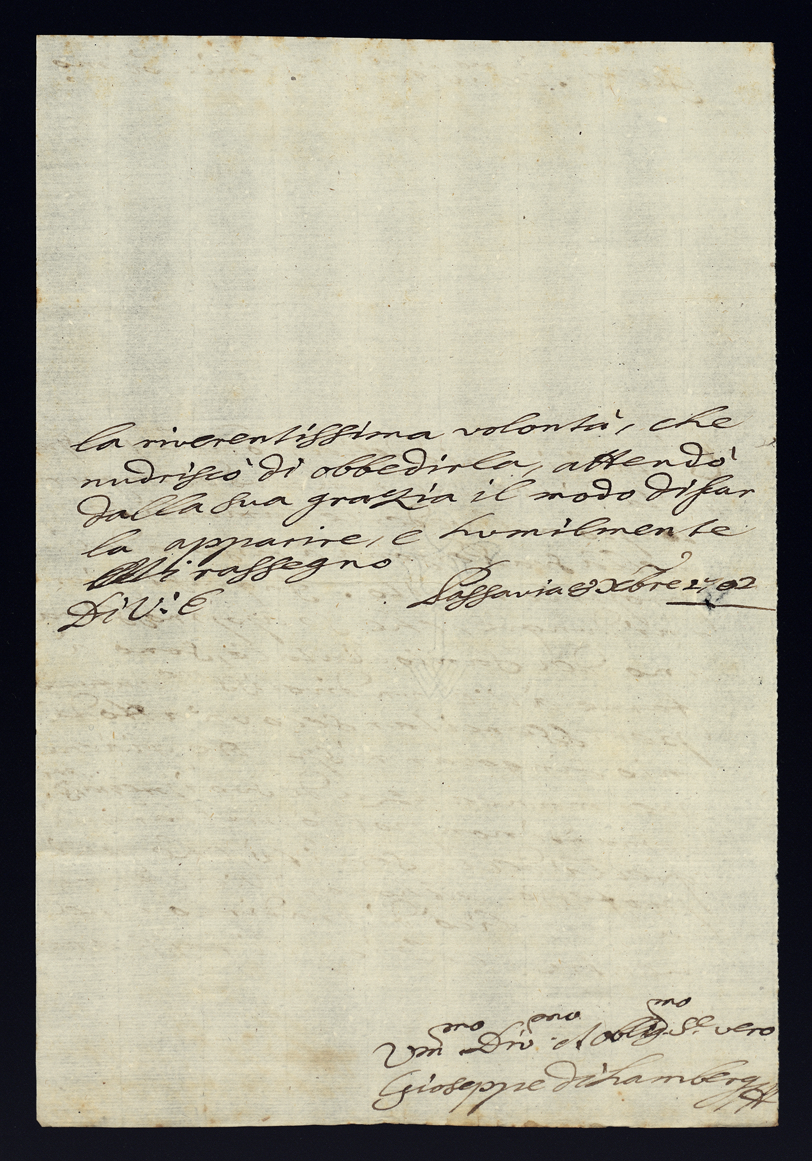 la riverentissima volontà, che
nudriscò di obbedirla, attendò
dalla sua grazia il modo di far
la apparire, e humilmente
Mi rassegno
Di V: E
Passavia 8 Xbre 1702
Um^mo Div^mo et obblig^mo Se^r vero
Gioseppe di Lamberg